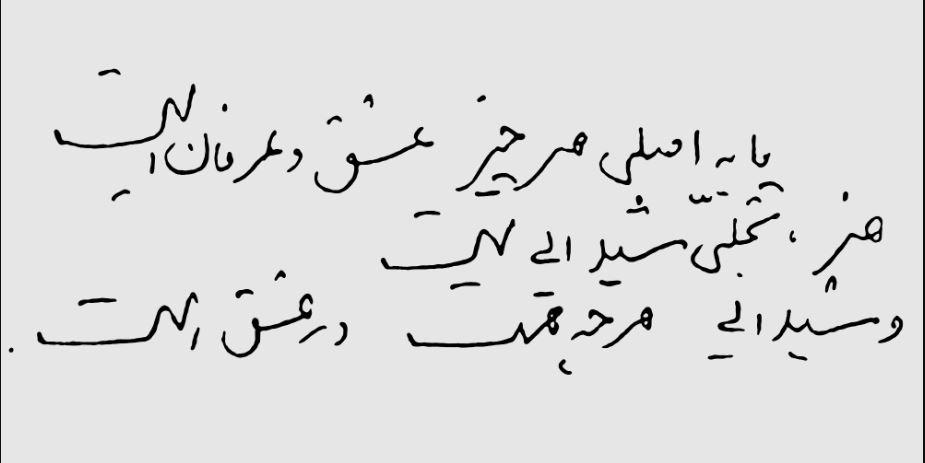 پایه اصلی هر چیز عشق و عرفان است
هنر، تجلّی شیدایی است
و شیدایی هر چه هست در عشق است.